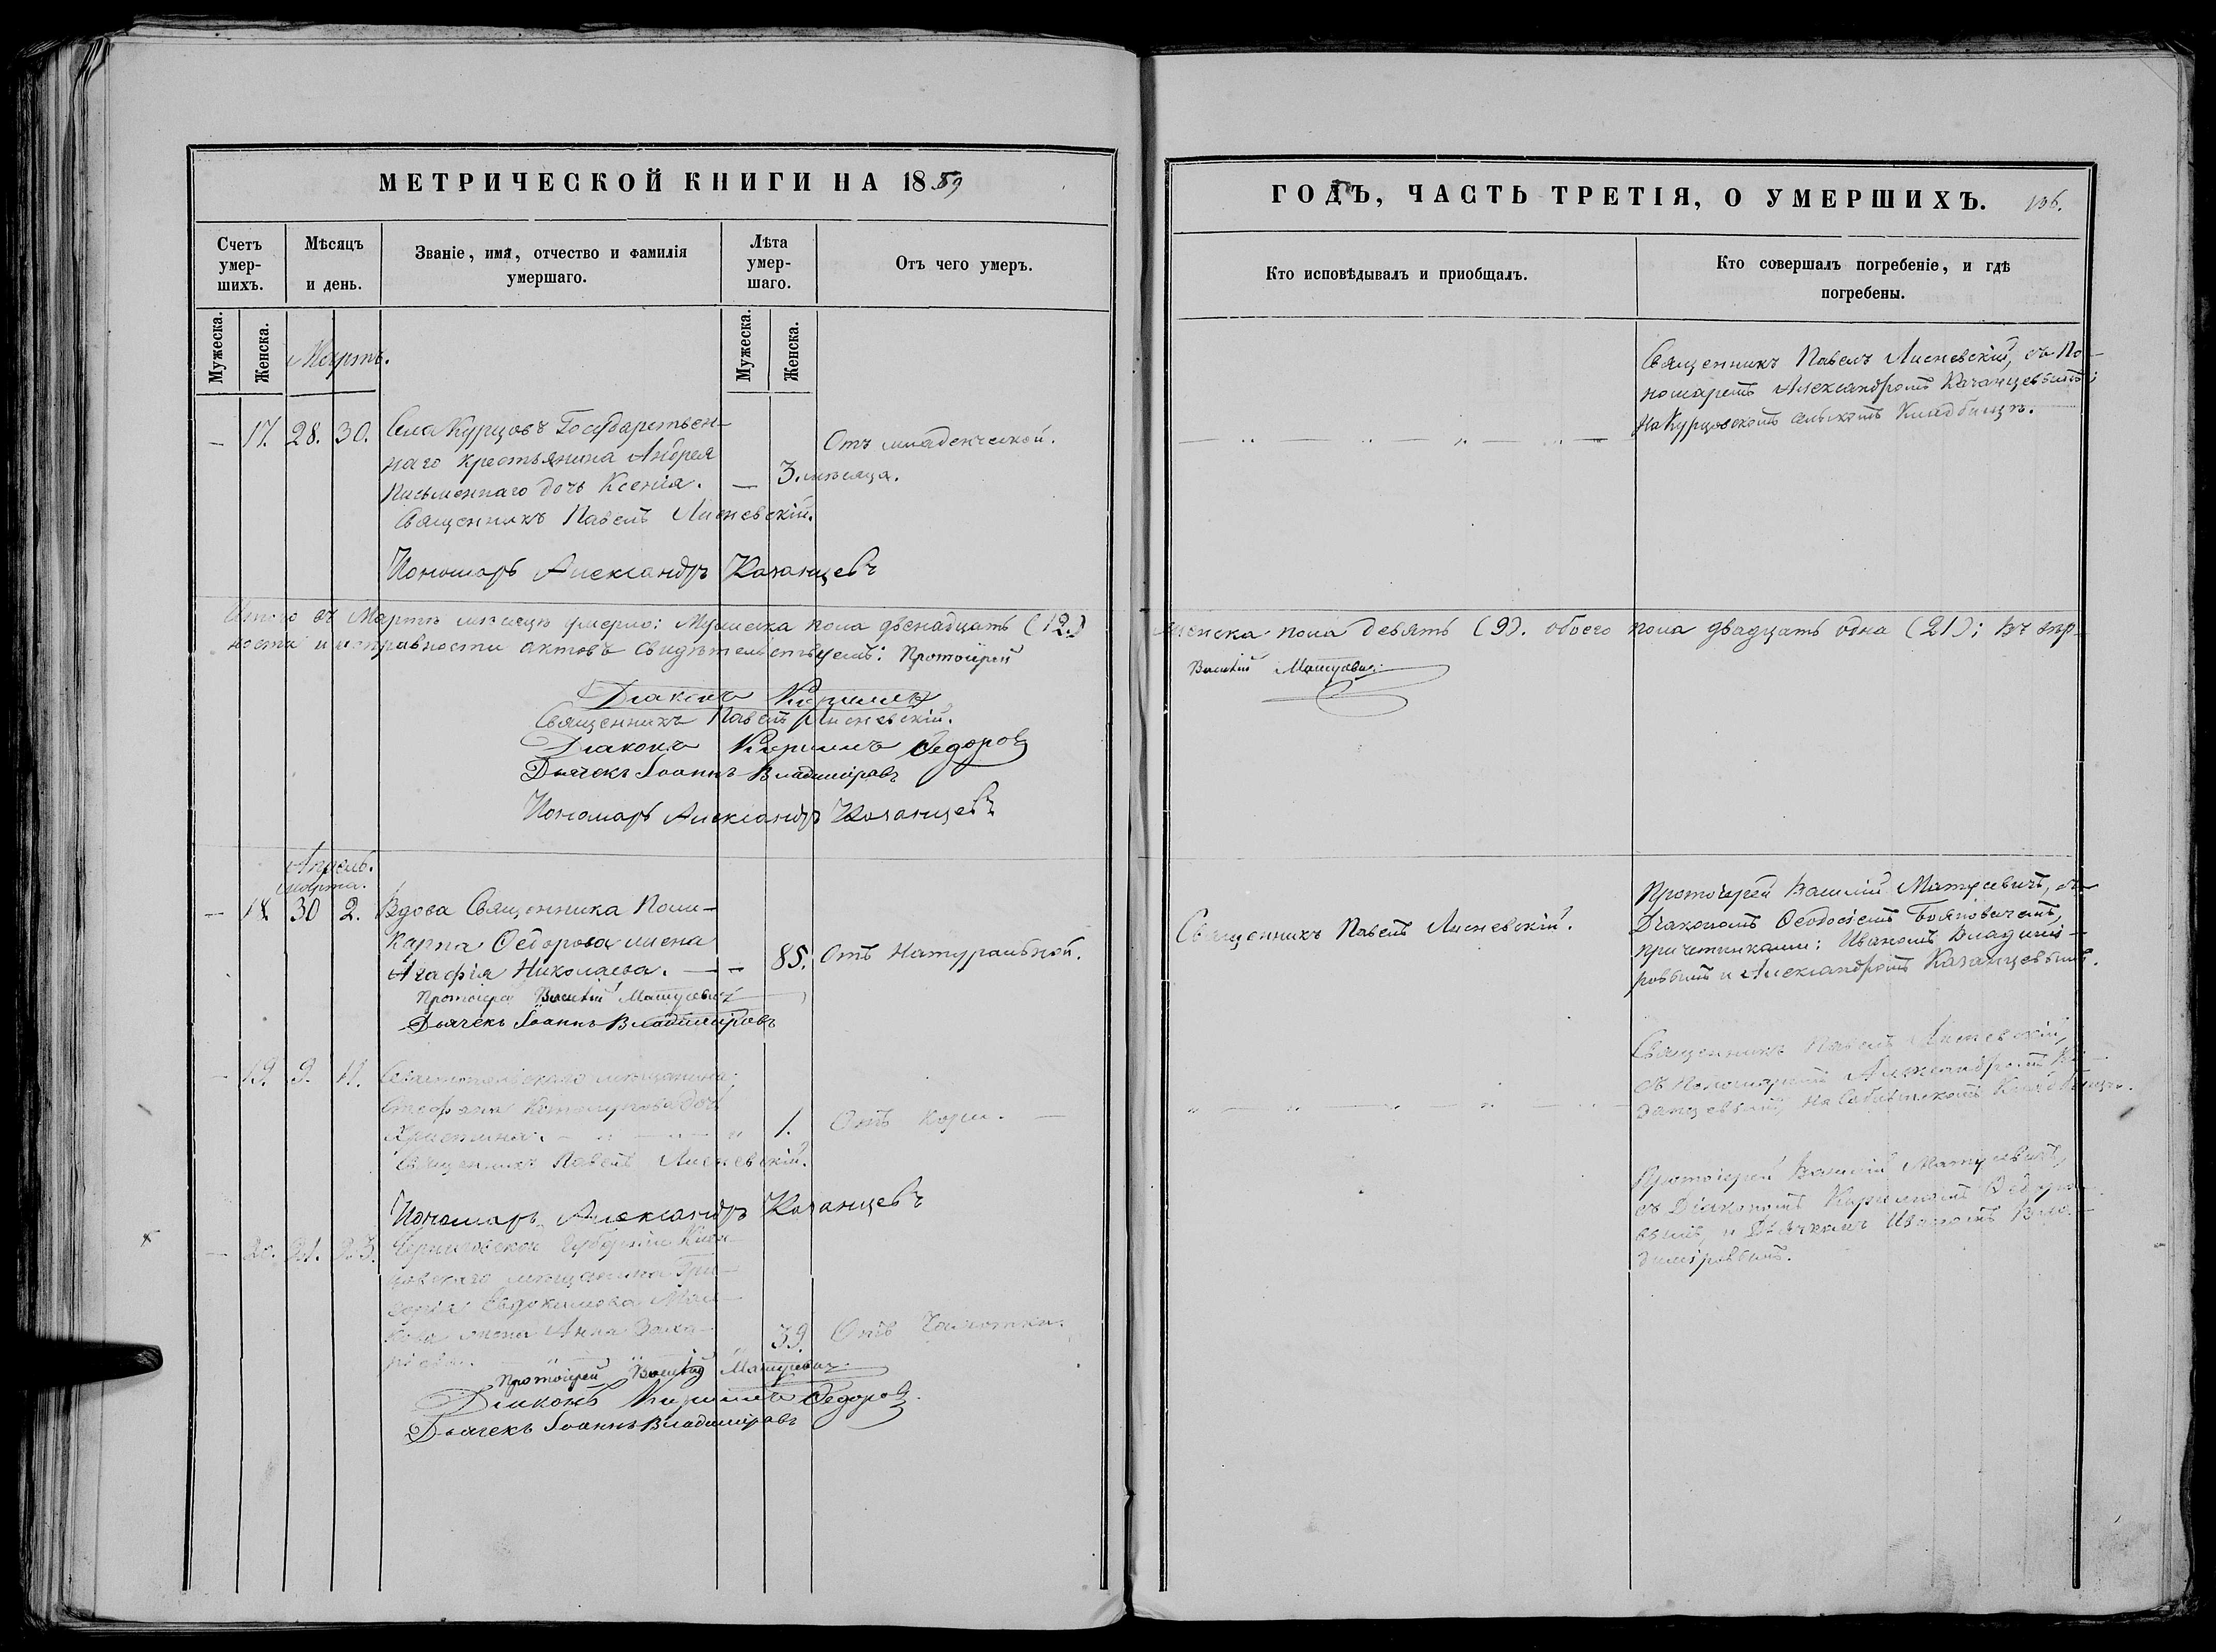 МЕТРИЧЕСКОЙ КНИГИ НА 1859
Счетъ умер-шихъ.
Мѣсяцъ и день.
Званіе, имя, отчество и фамилія умершаго.
Лѣта умер-шаго.
Отъ чего умеръ.
Мужеска.
Женска.
Мужеска.
Женска.
Мартъ.
— 17. 28. 30. Села Курцовъ Государствен-
наго крестьянина Андрея
Письменнаго дочь Ксенія. — 3. мѣсяца.
Отъ младенческой.
Священникъ Павелъ Лисневскій.
Пономарь Александръ Казанцевъ
Итого въ Мартѣ мѣсяцѣ умерло: Мужеска пола двѣнадцать (12.)
ности и исправности актовъ свидѣтельствуемъ: Протоіерей
Діаконъ Кириллъ
Священникъ Павелъ Лисневскій.
Діаконъ Кириллъ Федоровъ
Дьячекъ Іоаннъ Владиміровъ
Пономарь Александръ Казанцевъ
Апрель.
марта.
— 18. 30 2. Вдова Священника Поли-
карпа Федорова жена
Агафія Николаева. — 85. Отъ Натуральной.
Протоіерей Василій Матусевичъ
Дьячекъ Іоаннъ Владиміровъ
— 19. 9. 11. Севастопольскаго мѣщанина
Стефана дочь
Христина. — „ — „ 1. Отъ кори. —
Священникъ Павелъ Лисневскій.
Пономарь Александръ Казанцевъ
— 20. 21. 23. Черниговской Губерніи
мѣщанина Гри-
горія Евдокимова
жена Анна Заха-
рієва. 39. Отъ Чахотки.
Протоіерей Василій Матусевичъ
Діаконъ Кириллъ Федоровъ
Дьячекъ Іоаннъ Владиміровъ
ГОДЪ, ЧАСТЬ ТРЕТІЯ, О УМЕРШИХЪ. 106.
Кто исповѣдывалъ и приобщалъ.
Кто совершалъ погребеніе, и гдѣ погребены.
Священникъ Павелъ Лисневскій, съ По-
номаремъ Александромъ Казанцевымъ;
На Курцовскомъ сельскомъ Кладбищѣ.
женска пола девять (9). обоего пола двадцать одна (21); въ вѣр-
Василій Матусевичъ
Священникъ Павелъ Лисневскій.
Протоіерей Василій Матусевичъ, съ
Діакономъ Феодосіемъ
причетниками: Иваномъ Владимі-
ровымъ и Александромъ Казанцевымъ.
Священникъ Павелъ Лисневскій,
съ Пономаремъ Александромъ Ка-
занцевымъ, на Кладбищѣ.
Протоіерей Василій Матусевичъ,
съ Діакономъ Кирилломъ Федоро-
вымъ, и Дьячкомъ Иваномъ Вла-
диміровымъ.